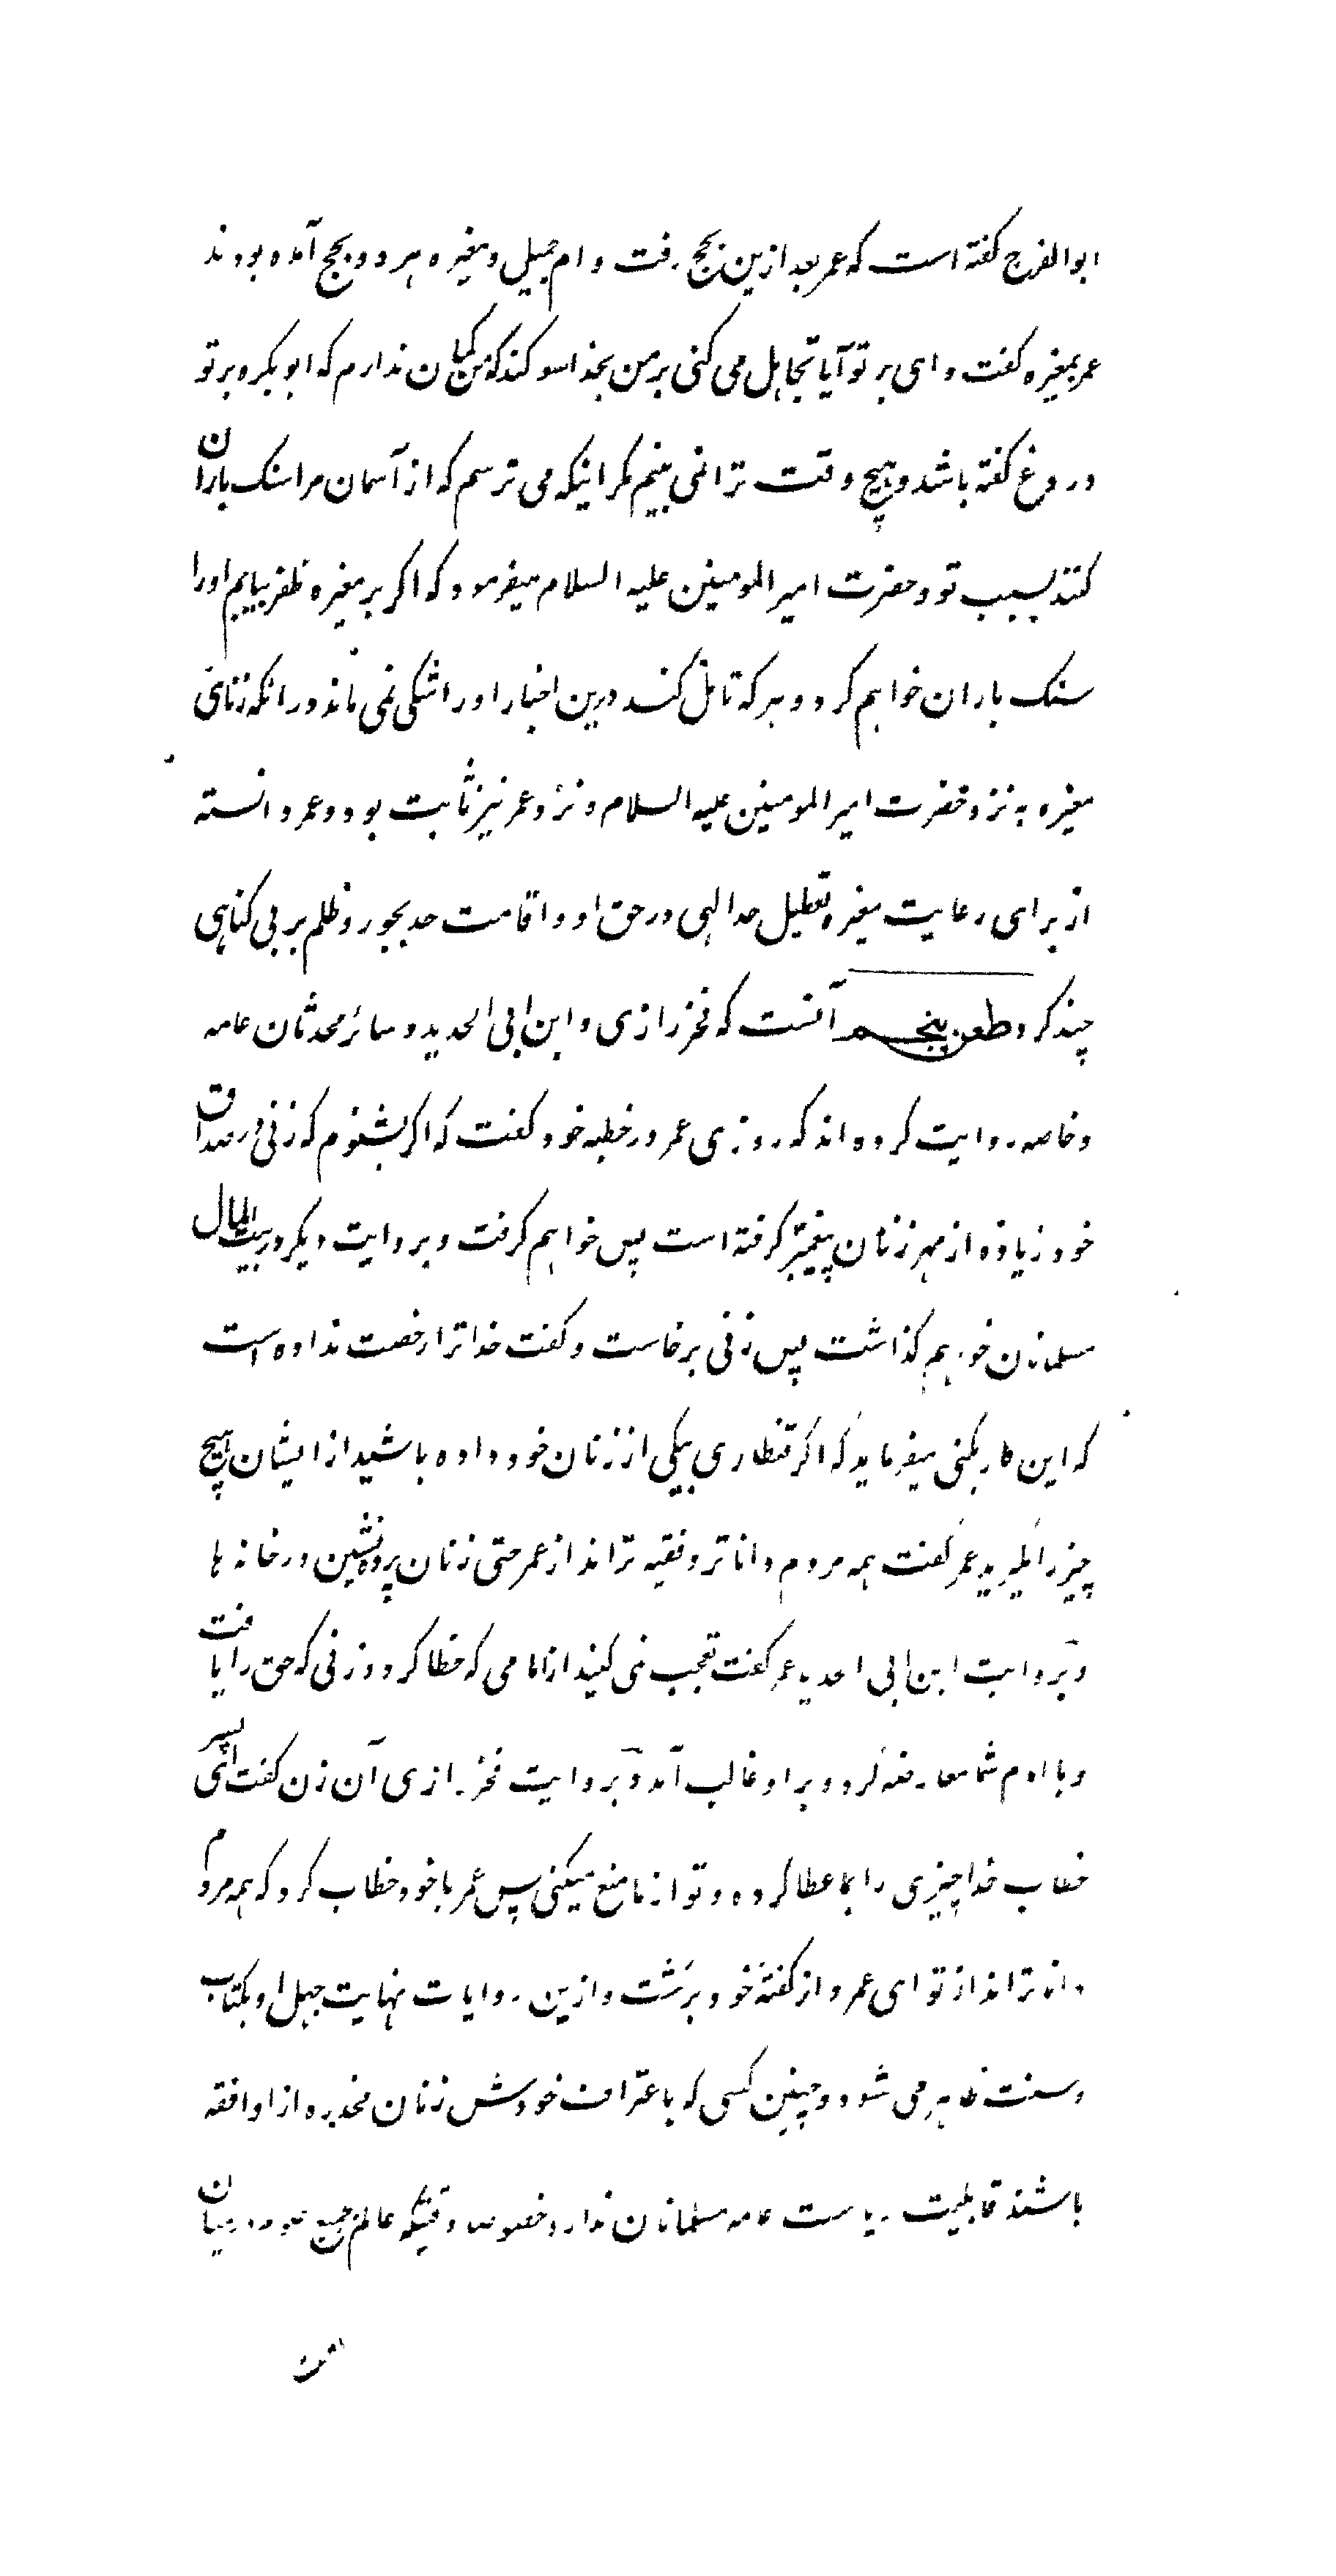 ابوالفرج گفته است که عمر بعد ازین بحج رفت و ام جمیل و مغیره هر دو بحج آمده بودند
عمر بمغیره گفت وای بر تو آیا تجاهل می کنی بر من بخدا سوگند که من گمان ندارم که ابو بکره بر تو
دروغ گفته باشد و هیچ وقت ترا نمی بینم مگر اینکه می ترسم که از آسمان مرا سنک باران
کنند بسبب تو و حضرت امیر المومنین علیه السلام میفرمود که اگر بر مغیره ظفر بیابم او را
سنک باران خواهم کرد و هر که تامل کند درین اخبار او را شکی نمی ماند در انکه زنای
مغیره به نزد حضرت امیر المومنین علیه السلام و نزد عمر نیز ثابت بود و عمر دانسته
از برای رعایت مغیره تعطیل حد الهی در حق او و اقامت حد بجور و ظلم بر بی گناهی
چند کرد طعن پنجم آنست که فخر رازی و ابن ابی الحدید و سائر محدثان عامه
و خاصه روایت کرده اند که روزی عمر در خطبه خود گفت که اگر بشنوم که زنی در صداق
خود زیاده از مهر زنان پیغمبر گرفته است پس خواهم گرفت و بروایت دیگر در بیت المال
مسلمانان خواهم گذاشت پس زنی برخاست و گفت خدا ترا رخصت نداده است
که این کار بکنی میفرماید که اگر قنطاری بیکی از زنان خود داده باشید از ایشان هیچ
چیز را مگیرید عمر گفت همه مردم داناتر و فقیه تراند از عمر حتی زنان پرده نشین در خانه ها
و بروایت ابن ابی الحدید عمر گفت تعجب نمی کنید از امامی که خطا کرد و زنی که حق را یافت
و با امام شما معارضه کرد و بر او غالب آمد و بروایت فخر رازی آن زن گفت ای پسر
خطاب خدا چیزی را بما عطا کرده و تو از ما منع میکنی پس عمر با خود خطاب کرد که همه مردم
داناتراند از تو ای عمر و از گفته خود برگشت و ازین روایات نهایت جهل او بکتاب
و سنت ظاهر می شود و چنین کسی که باعتراف خودش زنان مخدره از او افقه
باشند قابلیت ریاست عامه مسلمانان ندارد خصوصا وقتیکه عالم جمیع علوم در میان